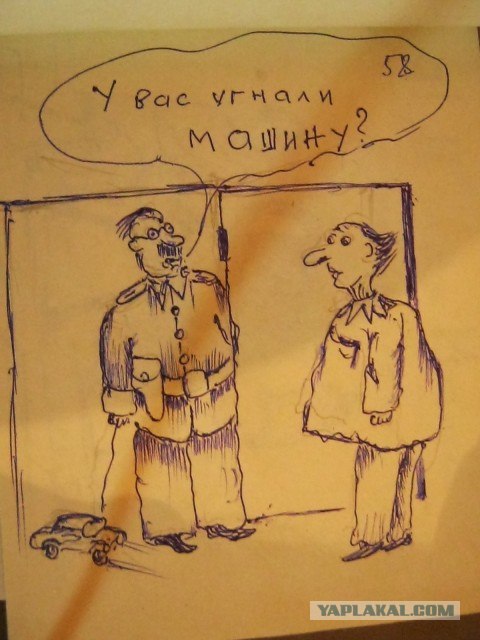 58
У вас угнали
машину?
YAPLAKAL.COM